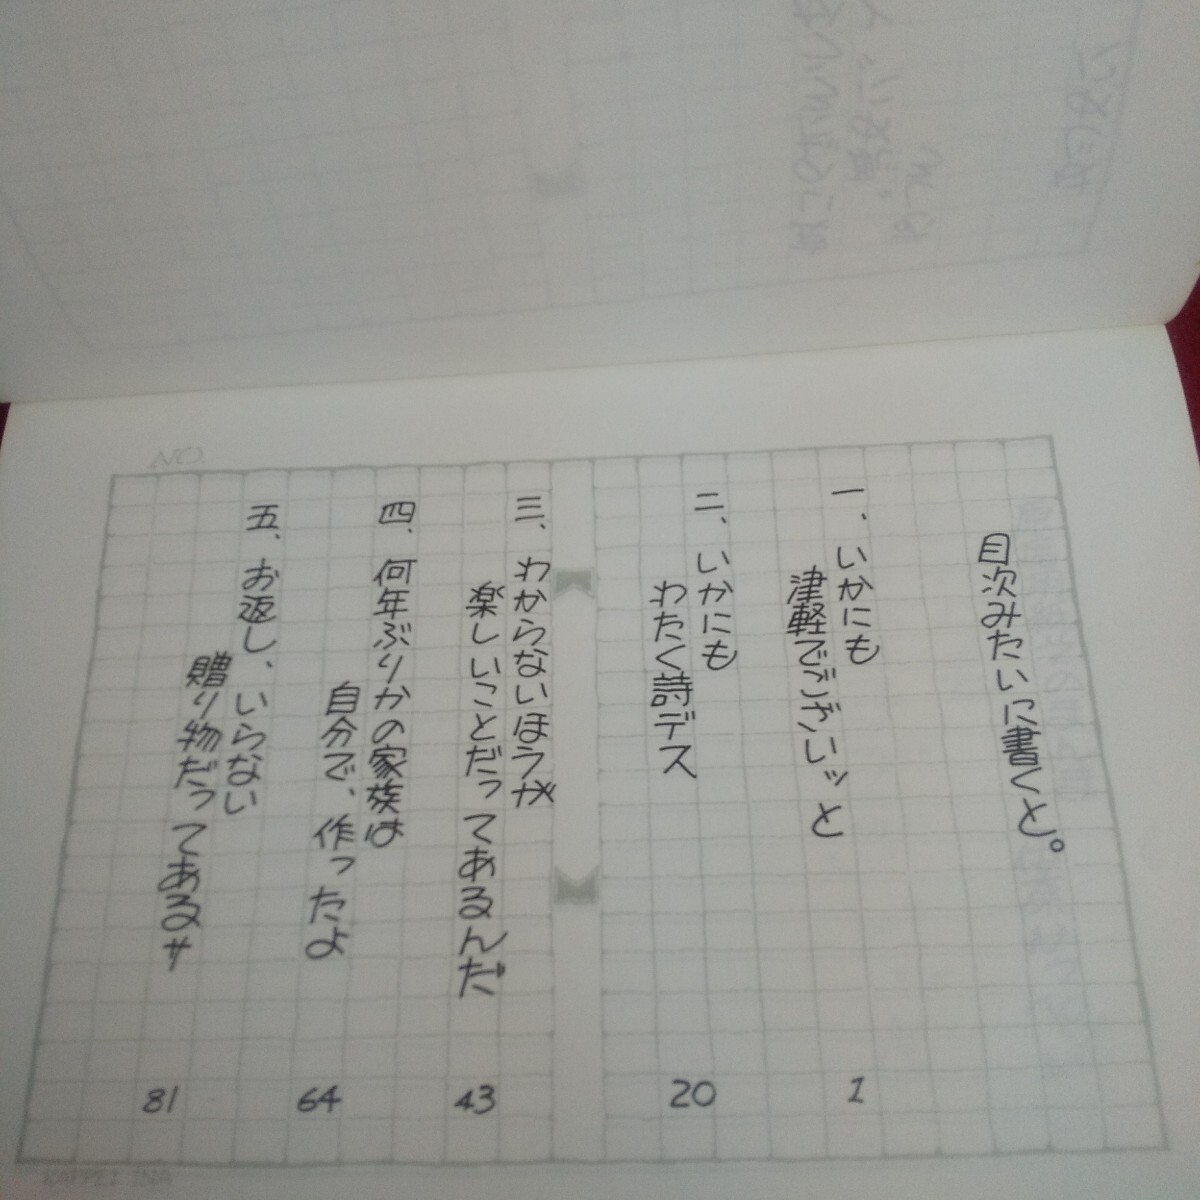 目次みたいに書くと。
一、いかにも
津軽でございッと
1
二、いかにも
わたく詩デス
20
三、わからないほうが
楽しいことだってあるんだ
43
四、何年ぶりかの家族は
自分で、作ったよ
64
五、お返し、いらない
贈り物だってあるサ
81
NO.
KAPPEI INA